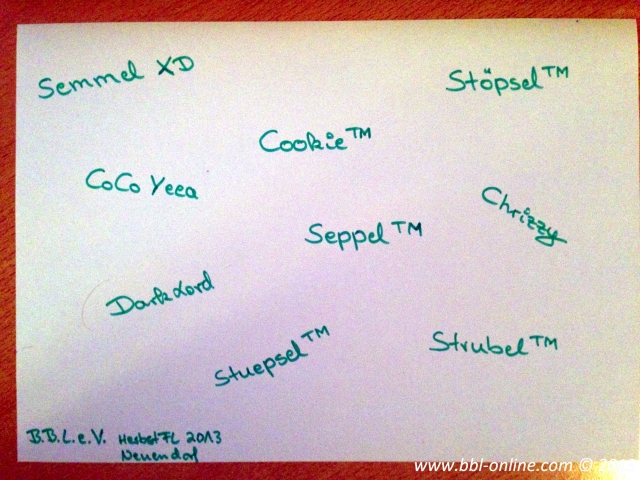 Semmel XD
Stöpsel™
Cookie™
CoCo Yeea
Chrizzy
Seppel™
Dark Lord
Stuepsel™
Strubel™
B.B.L.e.V. HerbstFL 2013
Neuendorf
www.bbl-online.com ©